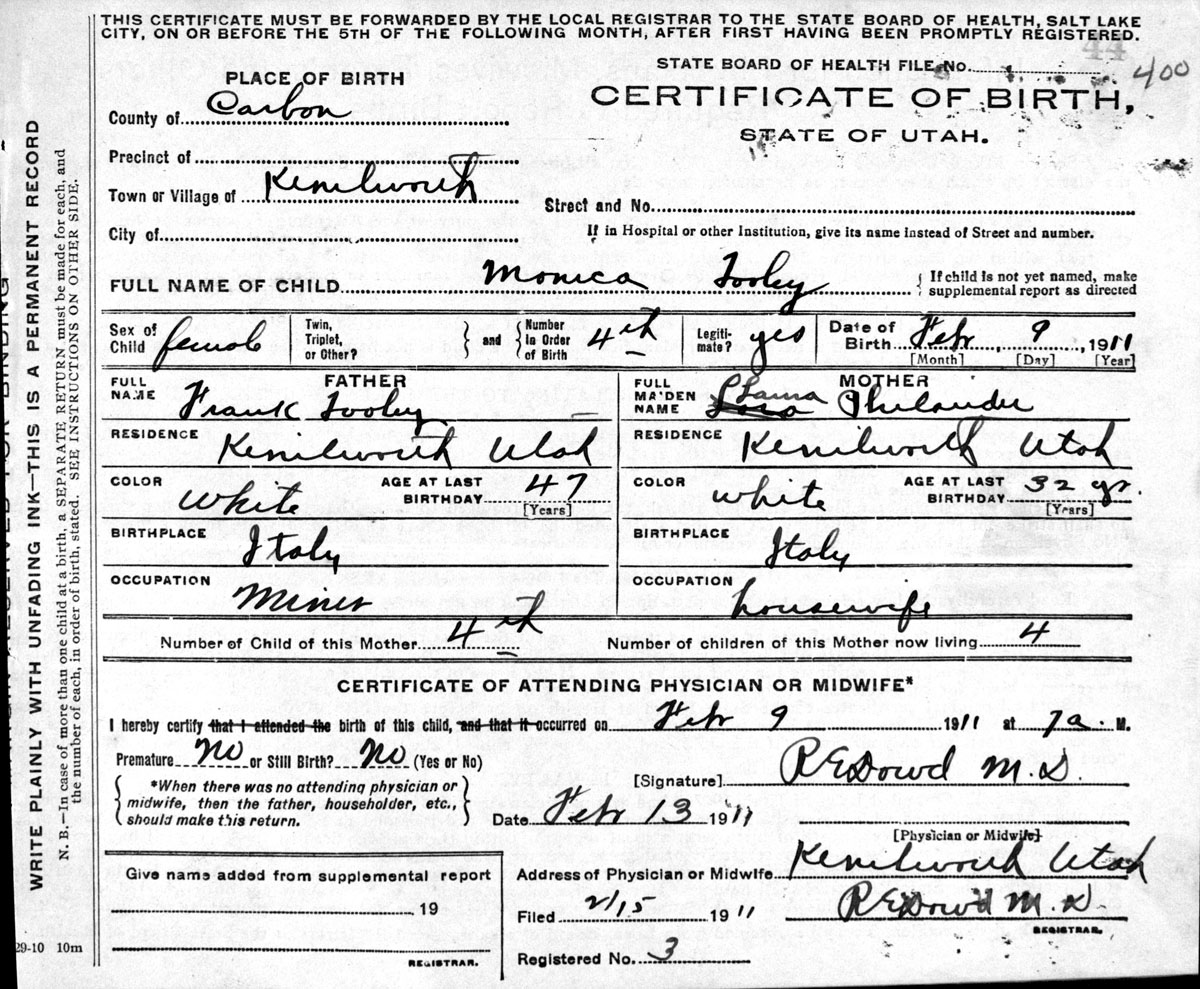 THIS CERTIFICATE MUST BE FORWARDED BY THE LOCAL REGISTRAR TO THE STATE BOARD OF HEALTH, SALT LAKE
CITY, ON OR BEFORE THE 5TH OF THE FOLLOWING MONTH, AFTER FIRST HAVING BEEN PROMPTLY REGISTERED.
44
STATE BOARD OF HEALTH FILE NO. 400
CERTIFICATE OF BIRTH,
STATE OF UTAH.
PLACE OF BIRTH
County of Carbon
Precinct of
Town or Village of Kenilworth
Street and No.
City of
If in Hospital or other Institution, give its name instead of Street and number.
FULL NAME OF CHILD Monica Tooley { If child is not yet named, make
supplemental report as directed
Sex of Child female
Twin, Triplet, or Other? } and { Number In Order of Birth 4th
Legiti- mate? yes
Date of Birth Feb 9, 1911
[Month] [Day] [Year]
FULL NAME FATHER Frank Tooley
FULL MAIDEN NAME MOTHER Laura Philander
RESIDENCE Kenilworth Utah
RESIDENCE Kenilworth Utah
COLOR White AGE AT LAST BIRTHDAY 47 [Years]
COLOR White AGE AT LAST BIRTHDAY 32 yr. [Years]
BIRTHPLACE Italy
BIRTHPLACE Italy
OCCUPATION Miner
OCCUPATION housewife
Number of Child of this Mother 4th
Number of children of this Mother now living 4
CERTIFICATE OF ATTENDING PHYSICIAN OR MIDWIFE*
I hereby certify that I attended the birth of this child, and that it occurred on Feb 9 1911 at 7 a. M.
Premature No or Still Birth? No (Yes or No)
[Signature] R E Dowd M.D.
{ *When there was no attending physician or
midwife, then the father, householder, etc.,
should make this return. }
Date Feb 13 1911
[Physician or Midwife]
Give name added from supplemental report
Address of Physician or Midwife Kenilworth Utah
19
Filed 2/15 1911 R E Dowd M.D.
REGISTRAR.
REGISTRAR.
Registered No. 3
29-10 10m
WRITE PLAINLY WITH UNFADING INK—THIS IS A PERMANENT RECORD
N. B.—In case of more than one child at a birth, a SEPARATE RETURN must be made for each, and
the number of each, in order of birth, stated. SEE INSTRUCTIONS ON OTHER SIDE.